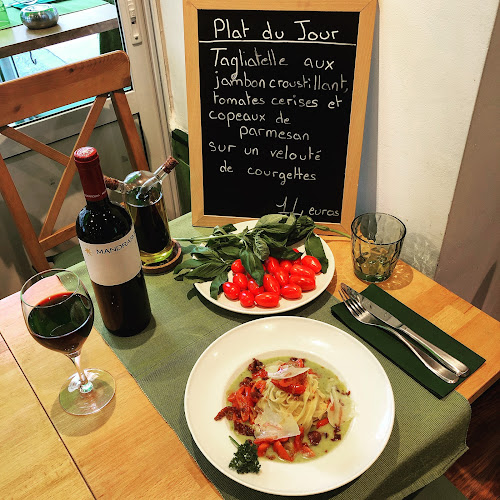 Plat du Jour
Tagliatelle aux
jambon croustillant,
tomates cerises et
copeaux de
parmesan
sur un velouté
de courgettes
14 euros